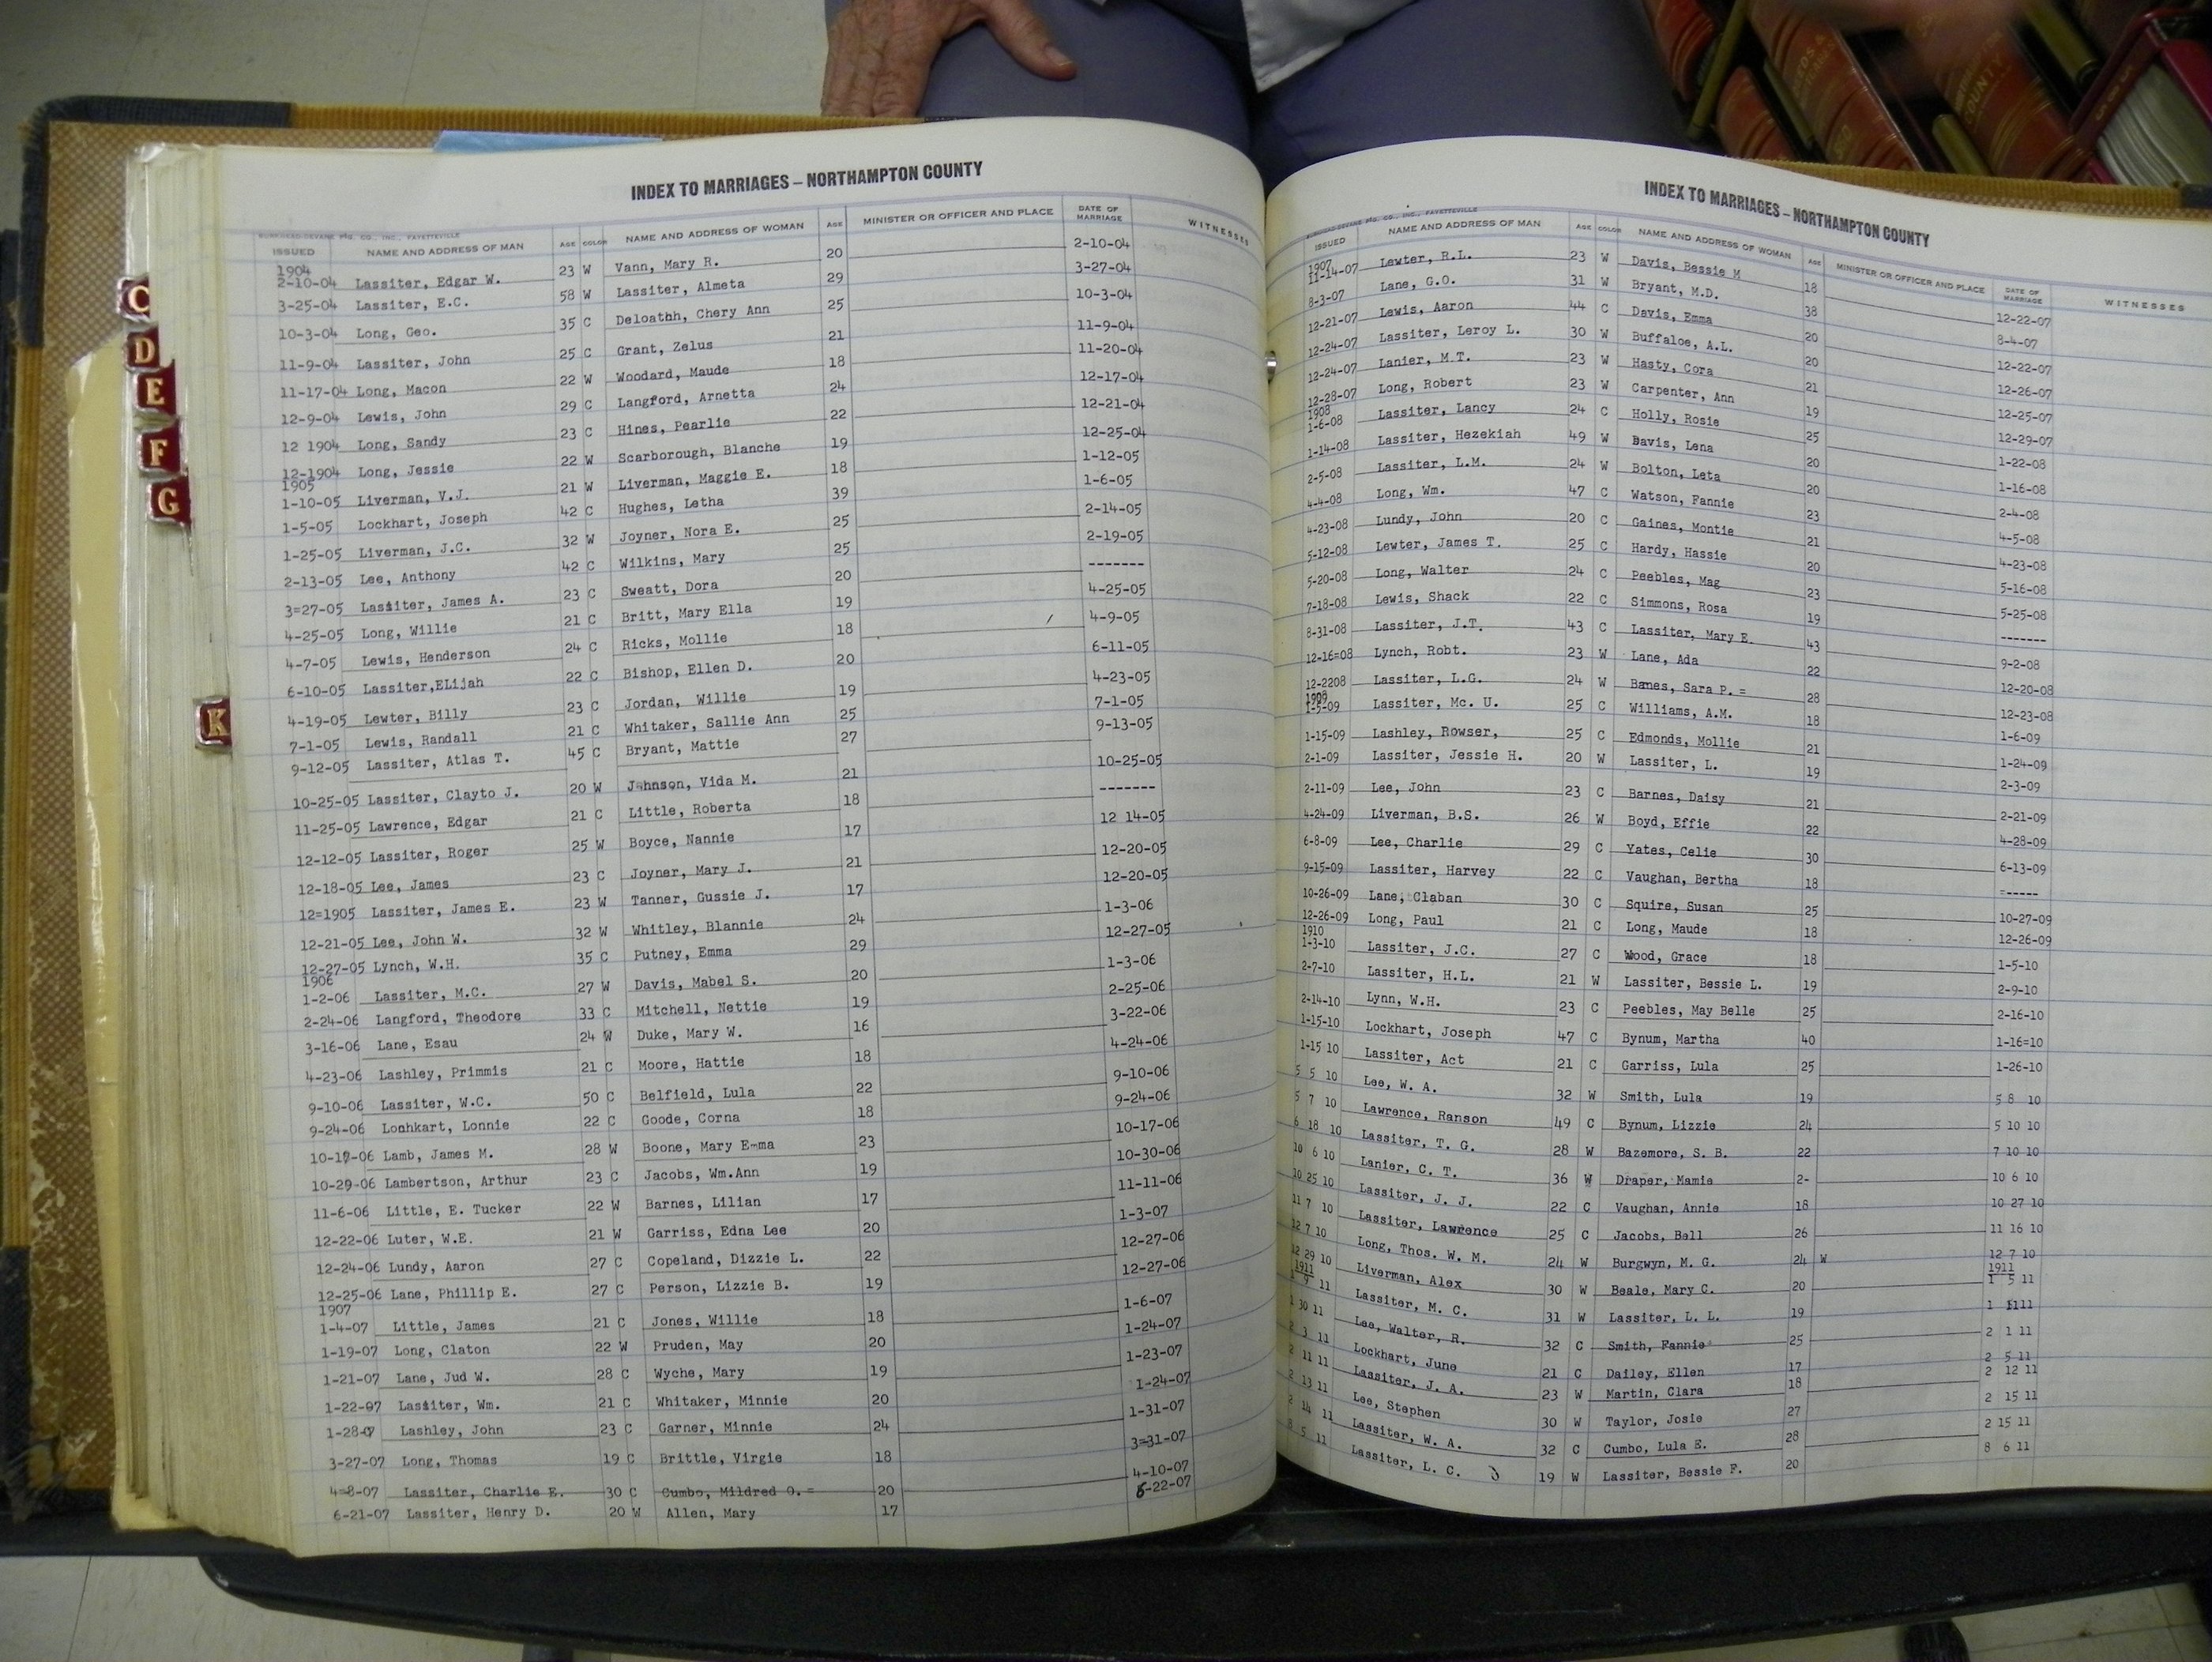 INDEX TO MARRIAGES – NORTHAMPTON COUNTY
ISSUED NAME AND ADDRESS OF MAN AGE COLOR NAME AND ADDRESS OF WOMAN AGE MINISTER OR OFFICER AND PLACE DATE OF MARRIAGE WITNESSES
1904
2-10-04 Lassiter, Edgar W. 23 W Vann, Mary R. 20 2-10-04
3-25-04 Lassiter, E.C. 58 W Lassiter, Almeta 29 3-27-04
10-3-04 Long, Geo. 35 C Deloathh, Chery Ann 25 10-3-04
11-9-04 Lassiter, John 25 C Grant, Zelus 21 11-9-04
11-17-04 Long, Macon 22 W Woodard, Maude 18 11-20-04
12-9-04 Lewis, John 29 C Langford, Arnetta 24 12-17-04
12 1904 Long, Sandy 23 C Hines, Pearlie 22 12-21-04
12-1904 Long, Jessie 22 W Scarborough, Blanche 19 12-25-04
1905
1-10-05 Liverman, V.J. 21 W Liverman, Maggie E. 18 1-12-05
1-5-05 Lockhart, Joseph 42 C Hughes, Letha 39 1-6-05
1-25-05 Liverman, J.C. 32 W Joyner, Nora E. 25 2-14-05
2-13-05 Lee, Anthony 42 C Wilkins, Mary 25 2-19-05
3=27-05 Lassiter, James A. 23 C Sweatt, Dora 20 -------
4-25-05 Long, Willie 21 C Britt, Mary Ella 19 4-25-05
4-7-05 Lewis, Henderson 24 C Ricks, Mollie 18 4-9-05
6-10-05 Lassiter,ELijah 22 C Bishop, Ellen D. 20 6-11-05
4-19-05 Lewter, Billy 23 C Jordan, Willie 19 4-23-05
7-1-05 Lewis, Randall 21 C Whitaker, Sallie Ann 25 7-1-05
9-12-05 Lassiter, Atlas T. 45 C Bryant, Mattie 27 9-13-05
10-25-05 Lassiter, Clayto J. 20 W Johnson, Vida M. 21 10-25-05
11-25-05 Lawrence, Edgar 21 C Little, Roberta 18 -------
12-12-05 Lassiter, Roger 25 W Boyce, Nannie 17 12 14-05
12-18-05 Lee, James 23 C Joyner, Mary J. 21 12-20-05
12=1905 Lassiter, James E. 23 W Tanner, Gussie J. 17 12-20-05
12-21-05 Lee, John W. 32 W Whitley, Blannie 24 1-3-06
12-27-05 Lynch, W.H. 35 C Putney, Emma 29 12-27-05
1906
1-2-06 Lassiter, M.C. 27 W Davis, Mabel S. 20 1-3-06
2-24-06 Langford, Theodore 33 C Mitchell, Nettie 19 2-25-06
3-16-06 Lane, Esau 24 W Duke, Mary W. 16 3-22-06
4-23-06 Lashley, Primmis 21 C Moore, Hattie 18 4-24-06
9-10-06 Lassiter, W.C. 50 C Belfield, Lula 22 9-10-06
9-24-06 Lonhkart, Lonnie 22 C Goode, Corna 18 9-24-06
10-17-06 Lamb, James M. 28 W Boone, Mary Emma 23 10-17-06
10-29-06 Lambertson, Arthur 23 C Jacobs, Wm.Ann 19 10-30-06
11-6-06 Little, E. Tucker 22 W Barnes, Lilian 17 11-11-06
12-22-06 Luter, W.E. 21 W Garriss, Edna Lee 20 1-3-07
12-24-06 Lundy, Aaron 27 C Copeland, Dizzie L. 22 12-27-06
12-25-06 Lane, Phillip E. 27 C Person, Lizzie B. 19 12-27-06
1907
1-4-07 Little, James 21 C Jones, Willie 18 1-6-07
1-19-07 Long, Claton 22 W Pruden, May 20 1-24-07
1-21-07 Lane, Jud W. 28 C Wyche, Mary 19 1-23-07
1-22-07 Lassiter, Wm. 21 C Whitaker, Minnie 20 1-24-07
1-28-07 Lashley, John 23 C Garner, Minnie 24 1-31-07
3-27-07 Long, Thomas 19 C Brittle, Virgie 18 3=31-07
4=8-07 Lassiter, Charlie E. 30 C Cumbo, Mildred O. = 20 4-10-07
6-21-07 Lassiter, Henry D. 20 W Allen, Mary 17 6-22-07
INDEX TO MARRIAGES – NORTHAMPTON COUNTY
ISSUED NAME AND ADDRESS OF MAN AGE COLOR NAME AND ADDRESS OF WOMAN AGE MINISTER OR OFFICER AND PLACE DATE OF MARRIAGE WITNESSES
1907
11-14-07 Lewter, R.L. 23 W Davis, Bessie M 18 12-22-07
8-3-07 Lane, G.O. 31 W Bryant, M.D. 38 8-4-07
12-21-07 Lewis, Aaron 44 C Davis, Emma 20 12-22-07
12-24-07 Lassiter, Leroy L. 30 W Buffaloe, A.L. 20 12-26-07
12-24-07 Lanier, M.T. 23 W Hasty, Cora 21 12-25-07
12-28-07 Long, Robert 23 W Carpenter, Ann 19 12-29-07
1908
1-6-08 Lassiter, Lancy 24 C Holly, Rosie 25 1-22-08
1-14-08 Lassiter, Hezekiah 49 W Davis, Lena 20 1-16-08
2-5-08 Lassiter, L.M. 24 W Bolton, Leta 20 2-4-08
4-4-08 Long, Wm. 47 C Watson, Fannie 23 4-5-08
4-23-08 Lundy, John 20 C Gaines, Montie 21 4-23-08
5-12-08 Lewter, James T. 25 C Hardy, Hassie 20 5-16-08
5-20-08 Long, Walter 24 C Peebles, Mag 23 5-25-08
7-18-08 Lewis, Shack 22 C Simmons, Rosa 19 -------
8-31-08 Lassiter, J.T. 43 C Lassiter, Mary E. 43 9-2-08
12-16=08 Lynch, Robt. 23 W Lane, Ada 22 12-20-08
12-2208 Lassiter, L.G. 24 W Banes, Sara P. = 28 12-23-08
1909
1-5-09 Lassiter, Mc. U. 25 C Williams, A.M. 18 1-6-09
1-15-09 Lashley, Rowser, 25 C Edmonds, Mollie 21 1-24-09
2-1-09 Lassiter, Jessie H. 20 W Lassiter, L. 19 2-3-09
2-11-09 Lee, John 23 C Barnes, Daisy 21 2-21-09
4-24-09 Liverman, B.S. 26 W Boyd, Effie 22 4-28-09
6-8-09 Lee, Charlie 29 C Yates, Celie 30 6-13-09
9-15-09 Lassiter, Harvey 22 C Vaughan, Bertha 18 =-----
10-26-09 Lane, Claban 30 C Squire, Susan 25 10-27-09
12-26-09 Long, Paul 21 C Long, Maude 18 12-26-09
1910
1-3-10 Lassiter, J.C. 27 C Wood, Grace 18 1-5-10
2-7-10 Lassiter, H.L. 21 W Lassiter, Bessie L. 19 2-9-10
2-14-10 Lynn, W.H. 23 C Peebles, May Belle 25 2-16-10
1-15-10 Lockhart, Joseph 47 C Bynum, Martha 40 1-16=10
1-15 10 Lassiter, Act 21 C Garriss, Lula 25 1-26-10
5 5 10 Lee, W. A. 32 W Smith, Lula 19 5 8 10
5 7 10 Lawrence, Ranson 49 C Bynum, Lizzie 24 5 10 10
6 18 10 Lassiter, T. G. 28 W Bazemore, S. B. 22 7 10 10
10 6 10 Lanier, C. T. 36 W Draper, Mamie 2- 10 6 10
10 25 10 Lassiter, J. J. 22 C Vaughan, Annie 18 10 27 10
11 7 10 Lassiter, Lawrence 25 C Jacobs, Bell 26 11 16 10
12 7 10 Long, Thos. W. M. 24 W Burgwyn, M. G. 24 W 12 7 10
12 29 10 Liverman, Alex 30 W Beale, Mary C. 20 1911 1 5 11
1911
1 9 11 Lassiter, M. C. 31 W Lassiter, L. L. 19 1 11
1 30 11 Lee, Walter, R. 32 C Smith, Fannie 25 2 1 11
2 3 11 Lockhart, June 21 C Dailey, Ellen 17 2 5 11
2 11 11 Lassiter, J. A. 23 W Martin, Clara 18 2 12 11
2 13 11 Lee, Stephen 30 W Taylor, Josie 27 2 15 11
2 14 11 Lassiter, W. A. 32 C Cumbo, Lula E. 28 2 15 11
8 5 11 Lassiter, L. C. 19 W Lassiter, Bessie F. 20 8 6 11
C
D
E
F
G
K
COUNTY